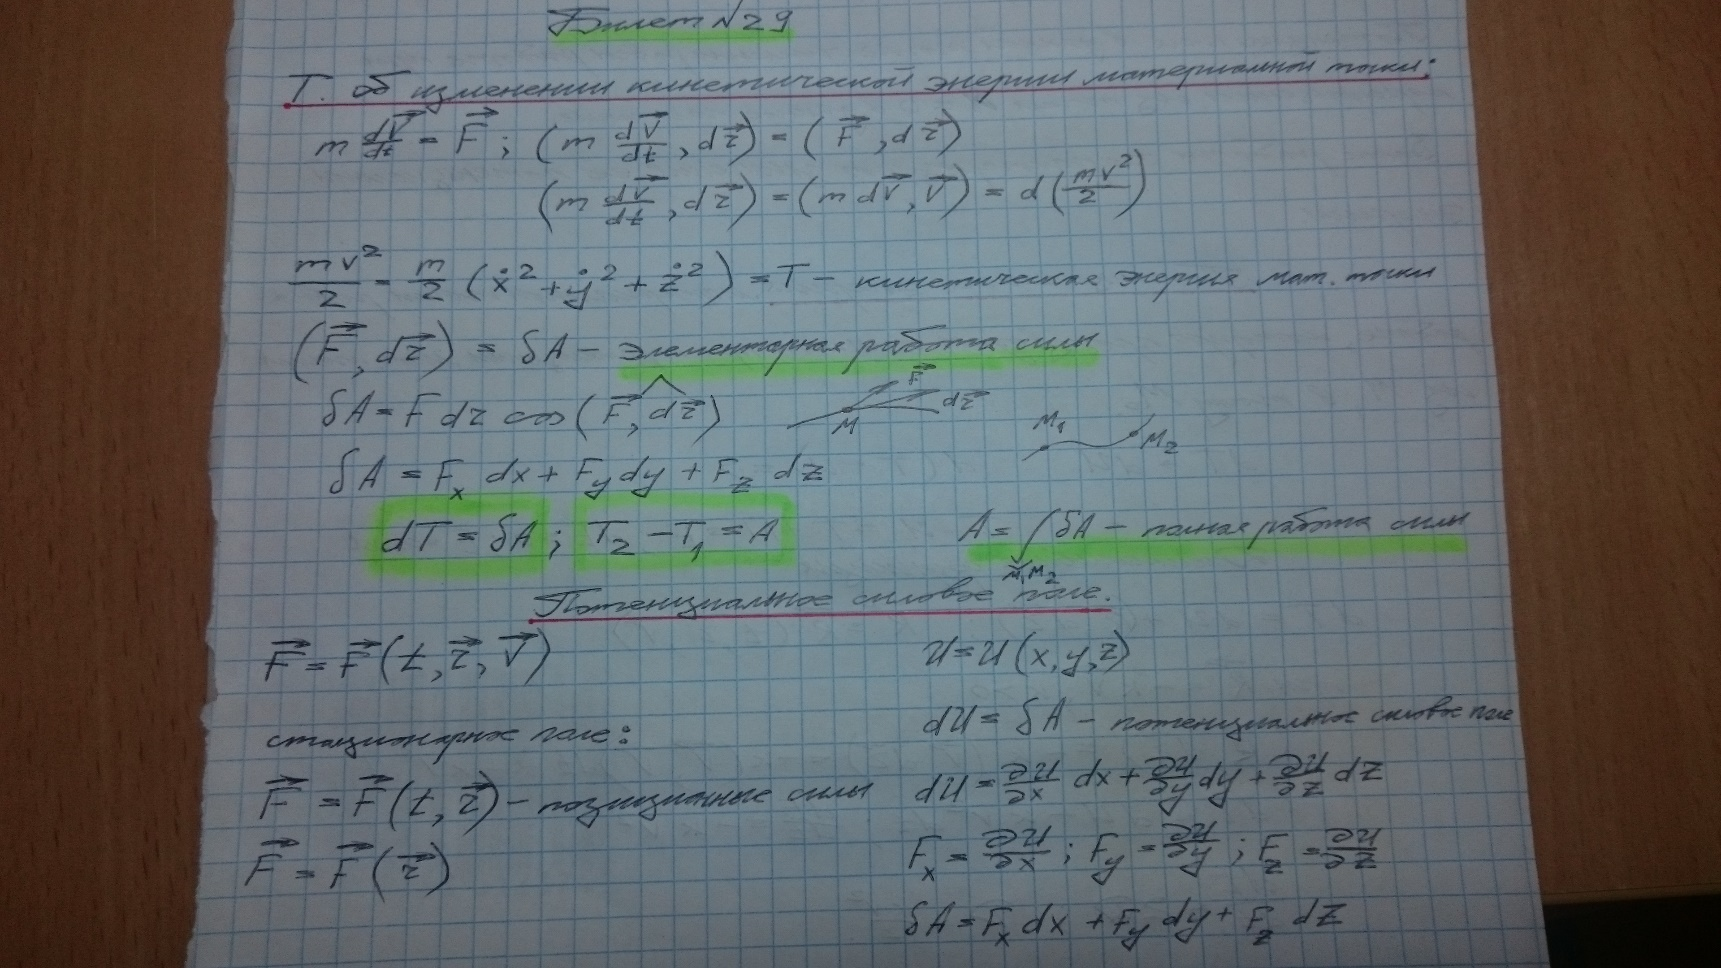 Билет №29
Т. об изменении кинетической энергии материальной точки:
m dV⃗/dt = F⃗ ; (m dV⃗/dt, dr⃗) = (F⃗, dr⃗)
(m dV⃗/dt, dr⃗) = (m dV⃗, V⃗) = d(mv²/2)
mv²/2 = m/2 (ẋ² + ẏ² + ż²) = T – кинетическая энергия мат. точки
(F⃗, dr⃗) = δA – элементарная работа силы
δA = F dr cos(F⃗, dr⃗)
M F⃗ dr⃗
M₁ M₂
δA = Fx dx + Fy dy + Fz dz
dT = δA ; T₂ – T₁ = A
A = ∫ δA – полная работа силы
M₁M₂
Потенциальное силовое поле.
F⃗ = F⃗(t, r⃗, V⃗)
стационарное поле:
F⃗ = F⃗(t, r⃗) – позиционные силы
F⃗ = F⃗(r⃗)
U = U(x, y, z)
dU = δA – потенциальное силовое поле
dU = ∂U/∂x dx + ∂U/∂y dy + ∂U/∂z dz
Fx = ∂U/∂x ; Fy = ∂U/∂y ; Fz = ∂U/∂z
δA = Fx dx + Fy dy + Fz dz